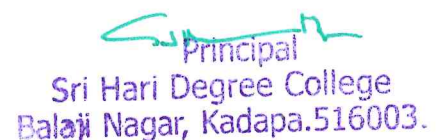 Principal
Sri Hari Degree College
Balaji Nagar, Kadapa.516003.